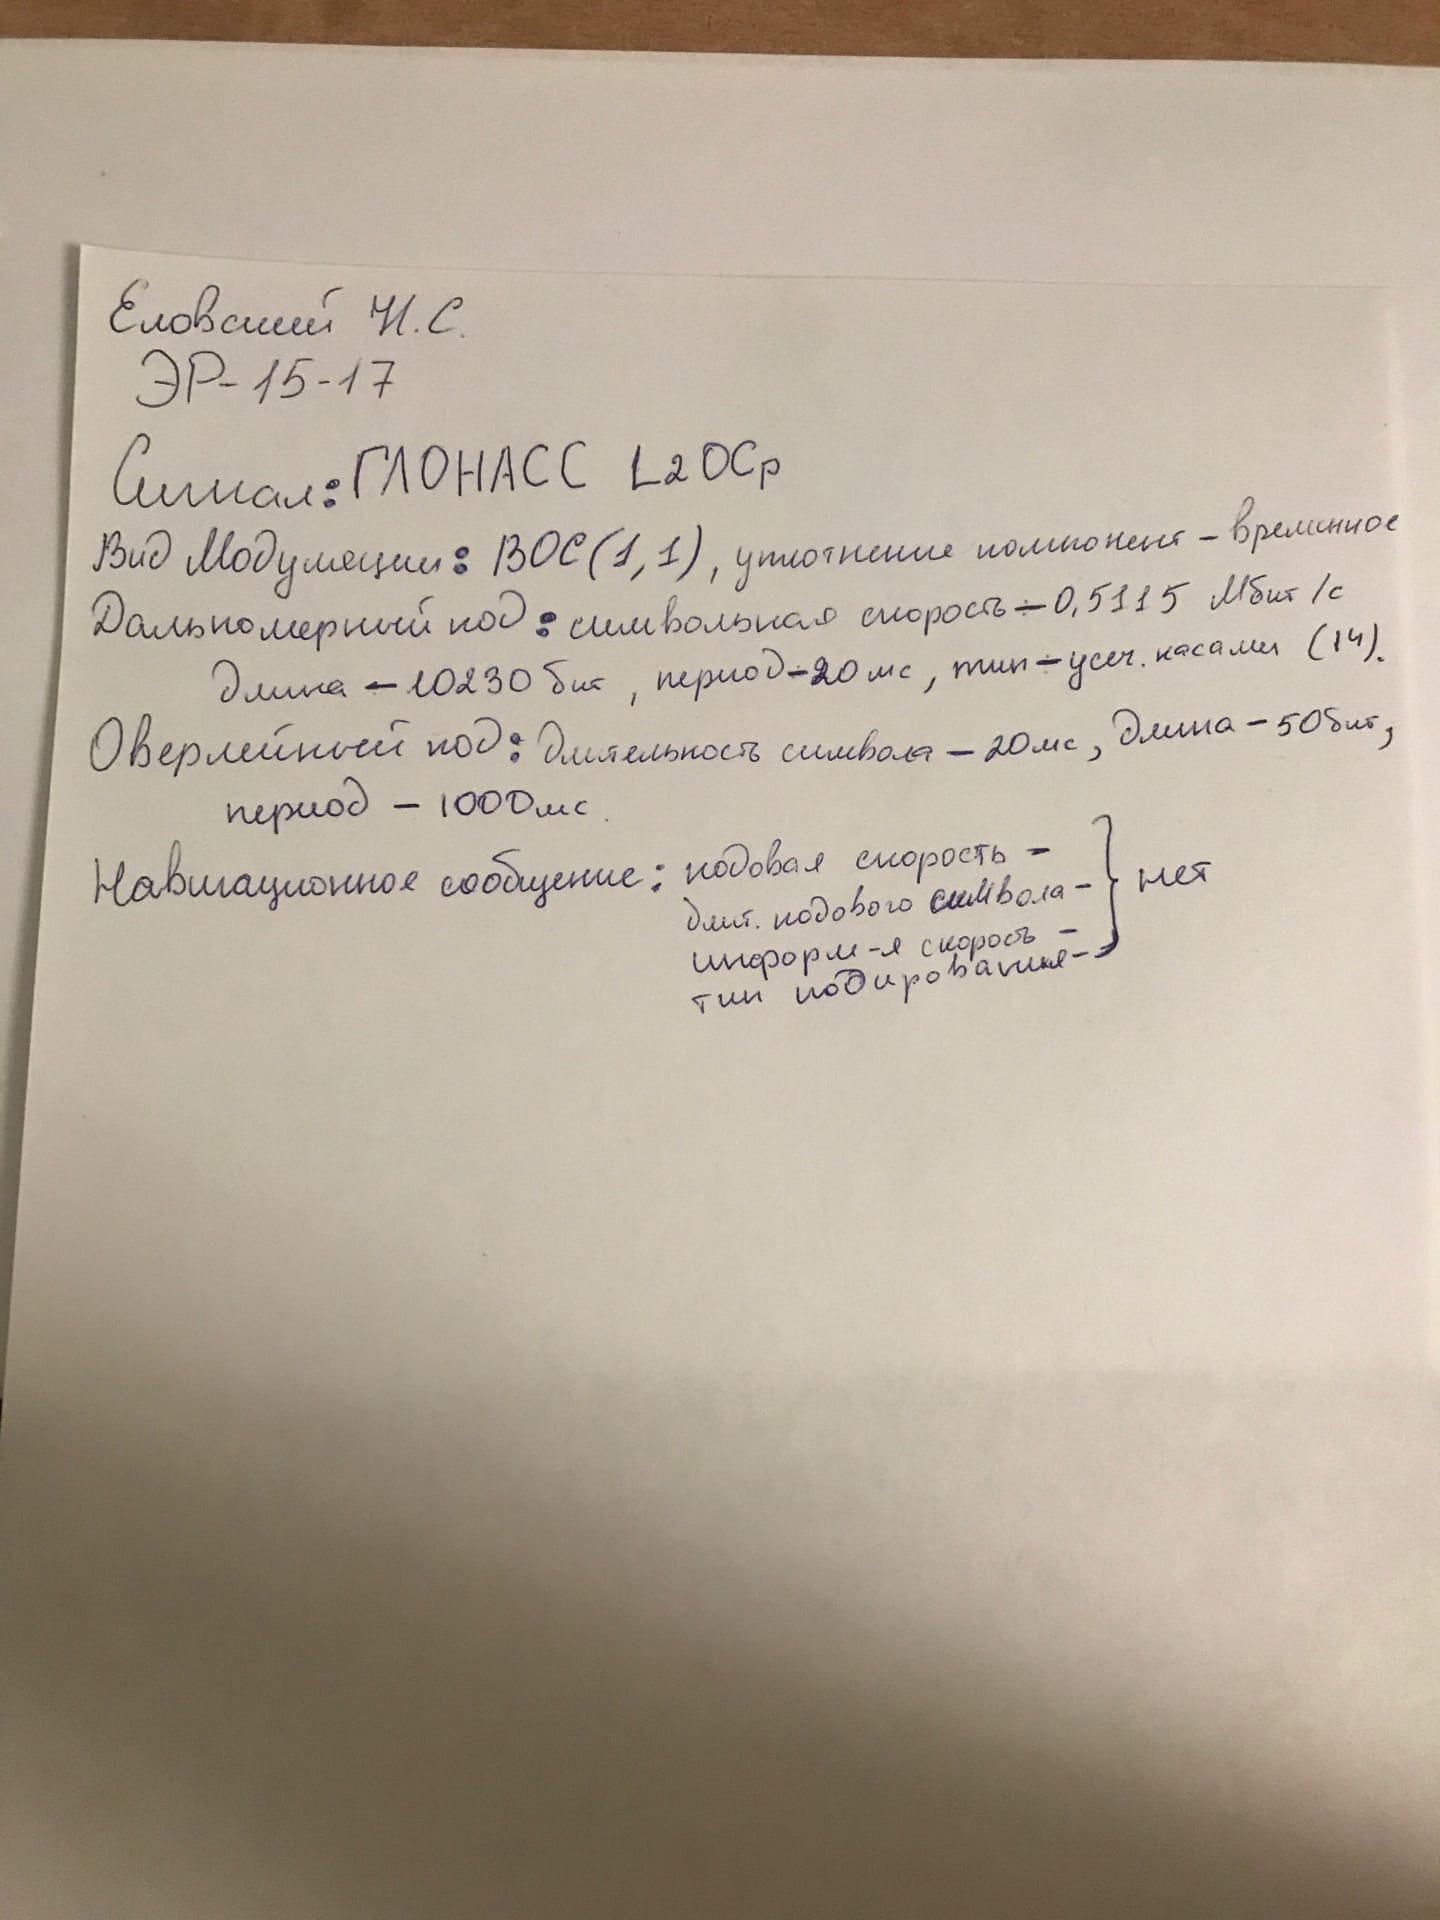 Еловский Н.С.
ЭР-15-17
Сигнал: ГЛОНАСС L2OCp
Вид Модуляции: BOC(1,1), уплотнение компонент - временное
Дальномерный код: символьная скорость - 0,5115 Мбит/с
длина - 10230 бит, период - 20 мс, тип - усеч. касами (14).
Оверлейный код: длительность символа - 20 мс, длина - 50 бит,
период - 1000 мс.
Навигационное сообщение: кодовая скорость -
длит. кодового символа -
информ-я скорость -
тип кодирования -
} нет